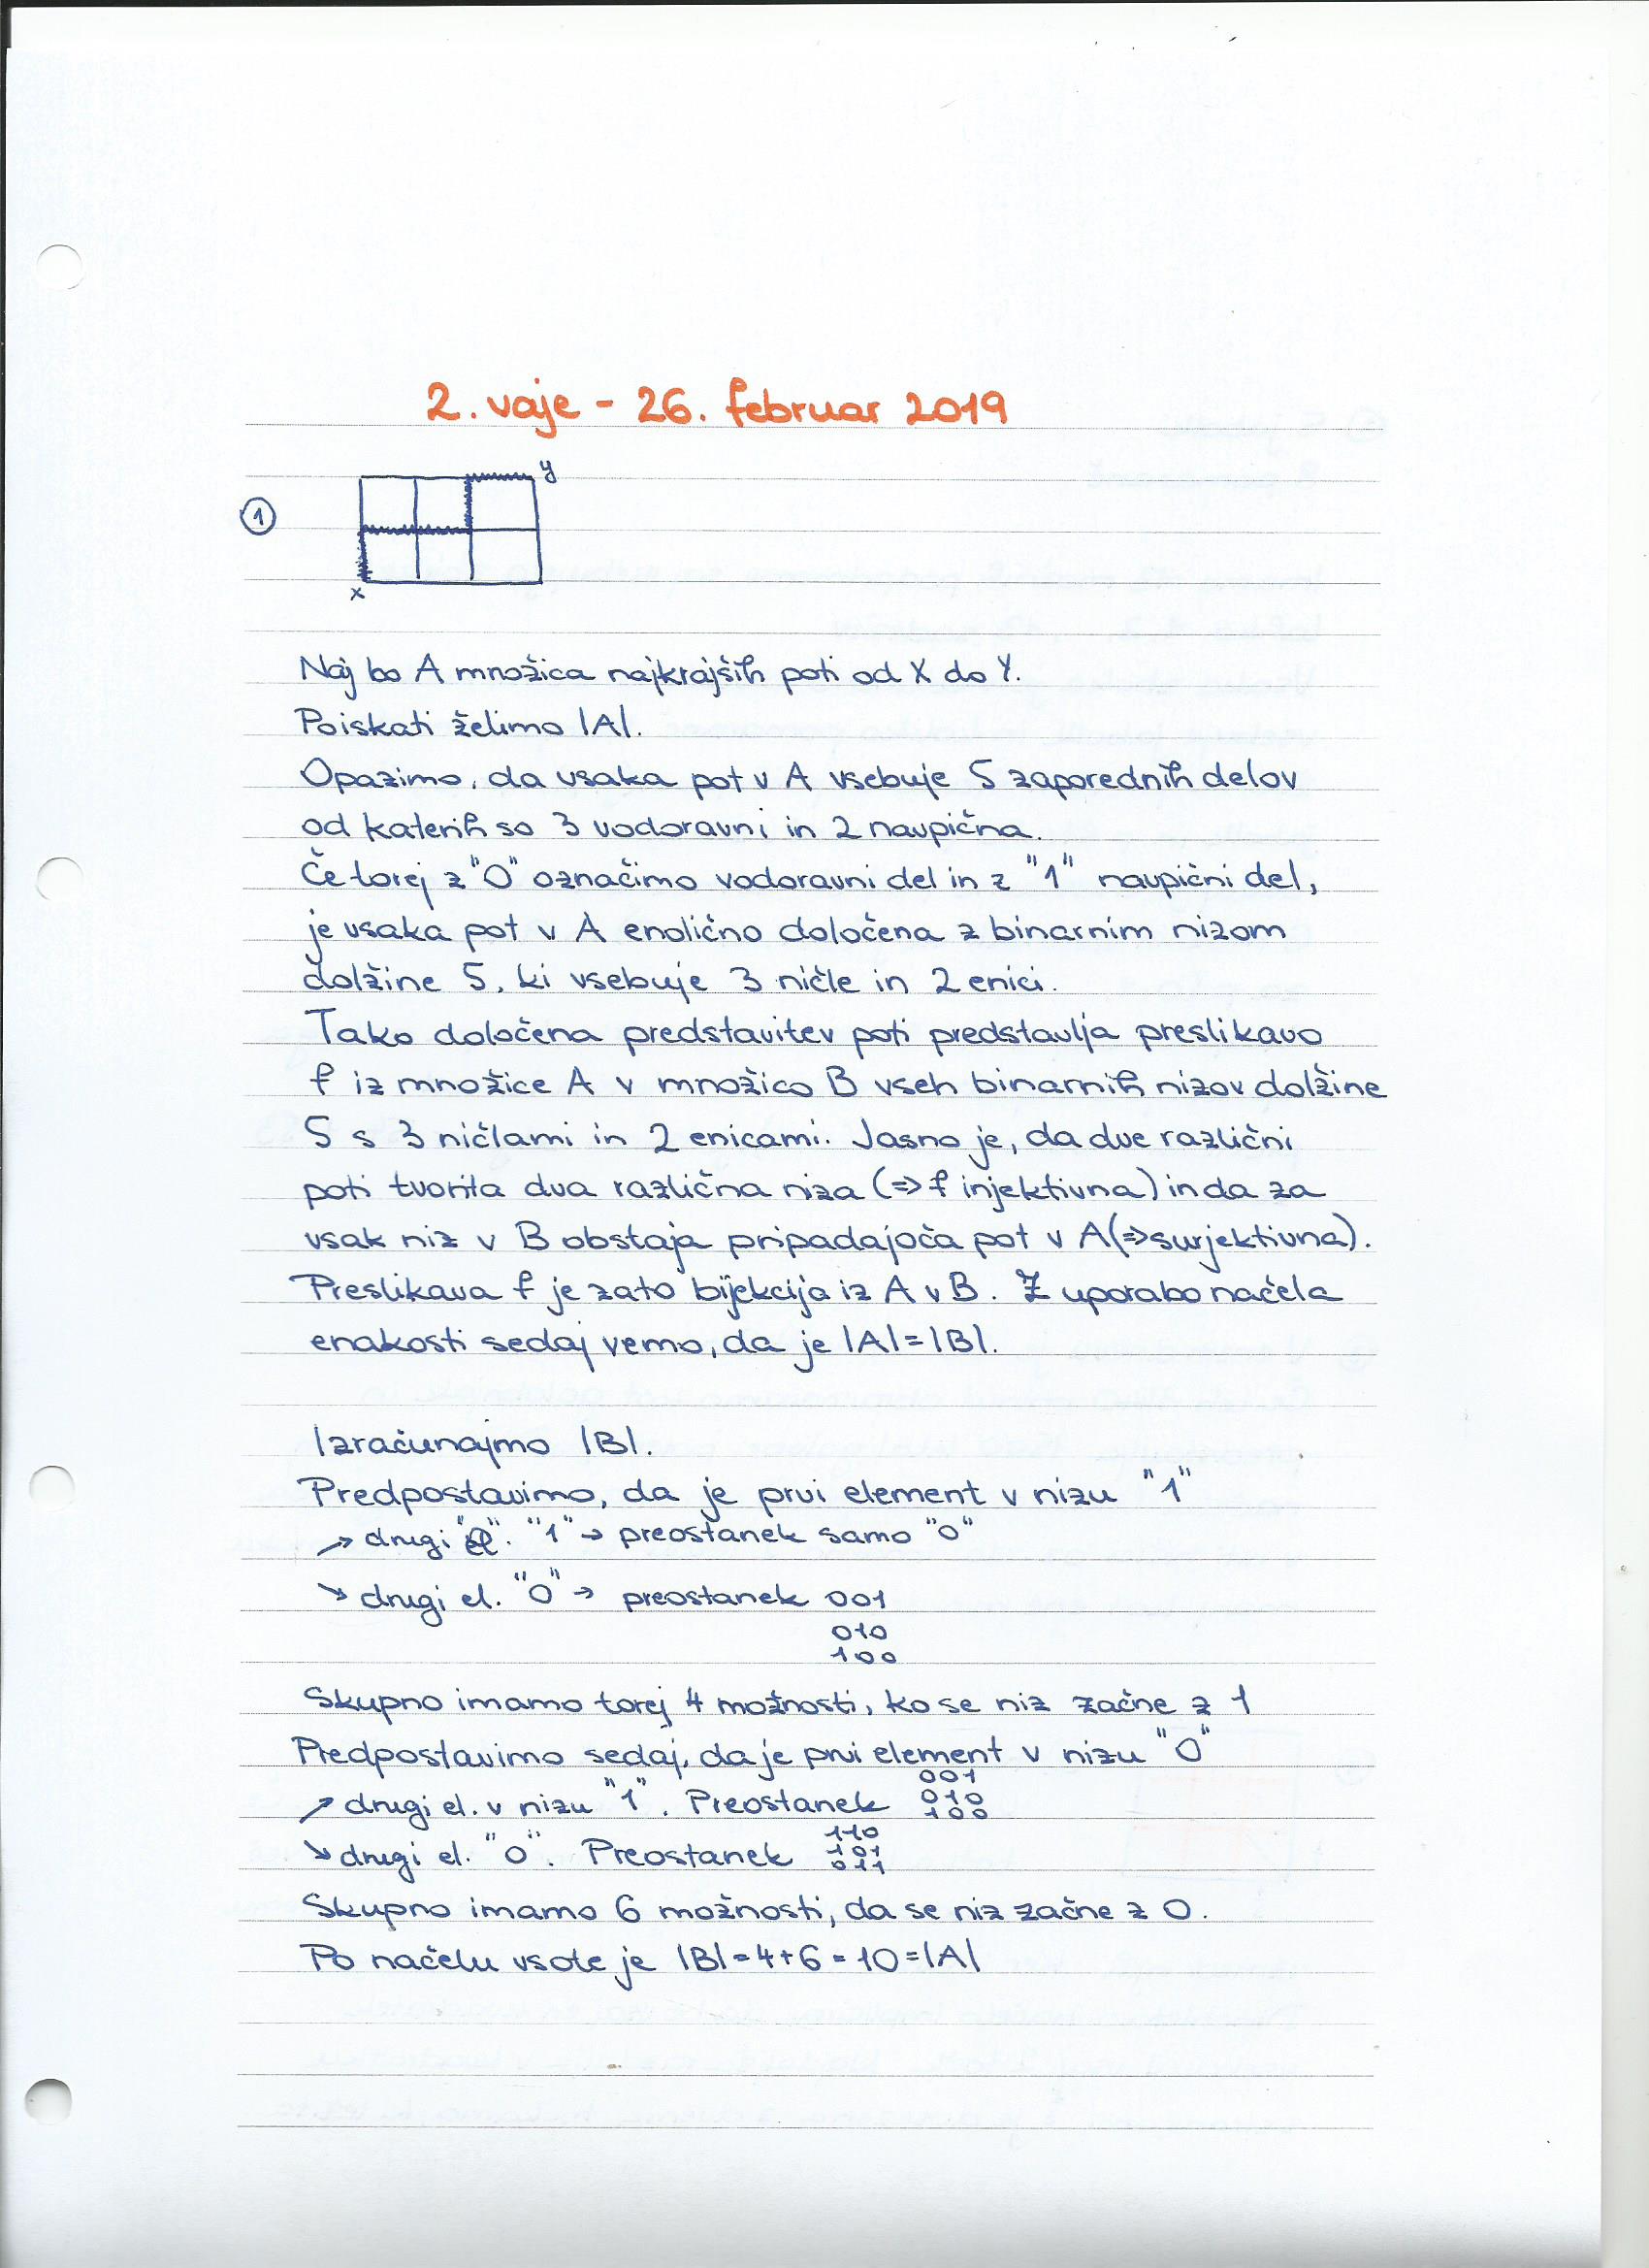 2. vaje - 26. februar 2019
y
1
x
Naj bo A množica najkrajših poti od X do Y.
Poiskati želimo |A|.
Opazimo, da vsaka pot v A vsebuje 5 zaporednih delov
od katerih so 3 vodoravni in 2 navpična.
Če torej z "0" označimo vodoravni del in z "1" navpični del,
je vsaka pot v A enolično določena z binarnim nizom
dolžine 5, ki vsebuje 3 ničle in 2 enici.
Tako določena predstavitev poti predstavlja preslikavo
f iz množice A v množico B vseh binarnih nizov dolžine
5 s 3 ničlami in 2 enicami. Jasno je, da dve različni
poti tvorita dva različna niza (⇒ f injektivna) in da za
vsak niz v B obstaja pripadajoča pot v A (⇒ surjektivna).
Preslikava f je zato bijekcija iz A v B. Z uporabo načela
enakosti sedaj vemo, da je |A|=|B|.
Izračunajmo |B|.
Predpostavimo, da je prvi element v nizu "1"
↗ drugi el. "1" → preostanek samo "0"
↘ drugi el. "0" → preostanek 001
010
100
Skupno imamo torej 4 možnosti, ko se niz začne z 1
Predpostavimo sedaj, da je prvi element v nizu "0"
001
↗ drugi el. v nizu "1". Preostanek 010
100
110
↘ drugi el. "0". Preostanek 101
011
Skupno imamo 6 možnosti, da se niz začne z 0.
Po načelu vsote je |B| = 4+6 = 10 = |A|